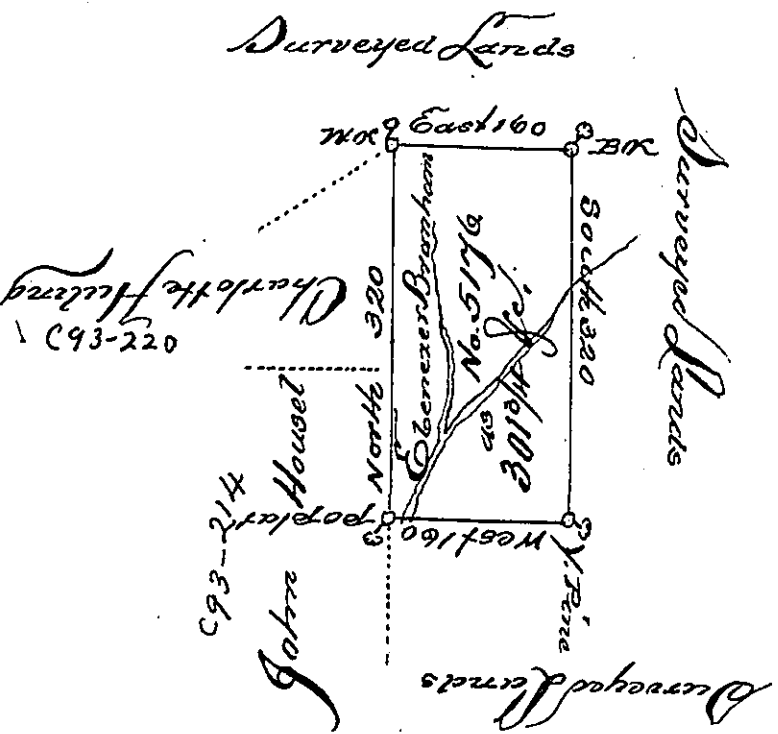 Surveyed Lands
East 160
WK
BK
Surveyed Lands
South 320
Ebenezer Branham
No. 5176
301 3/4
as
North 320
Charlotte Heiling
C93-220
John Housel
C93-214
poplar
West 160
Y. Pine
Surveyed Lands